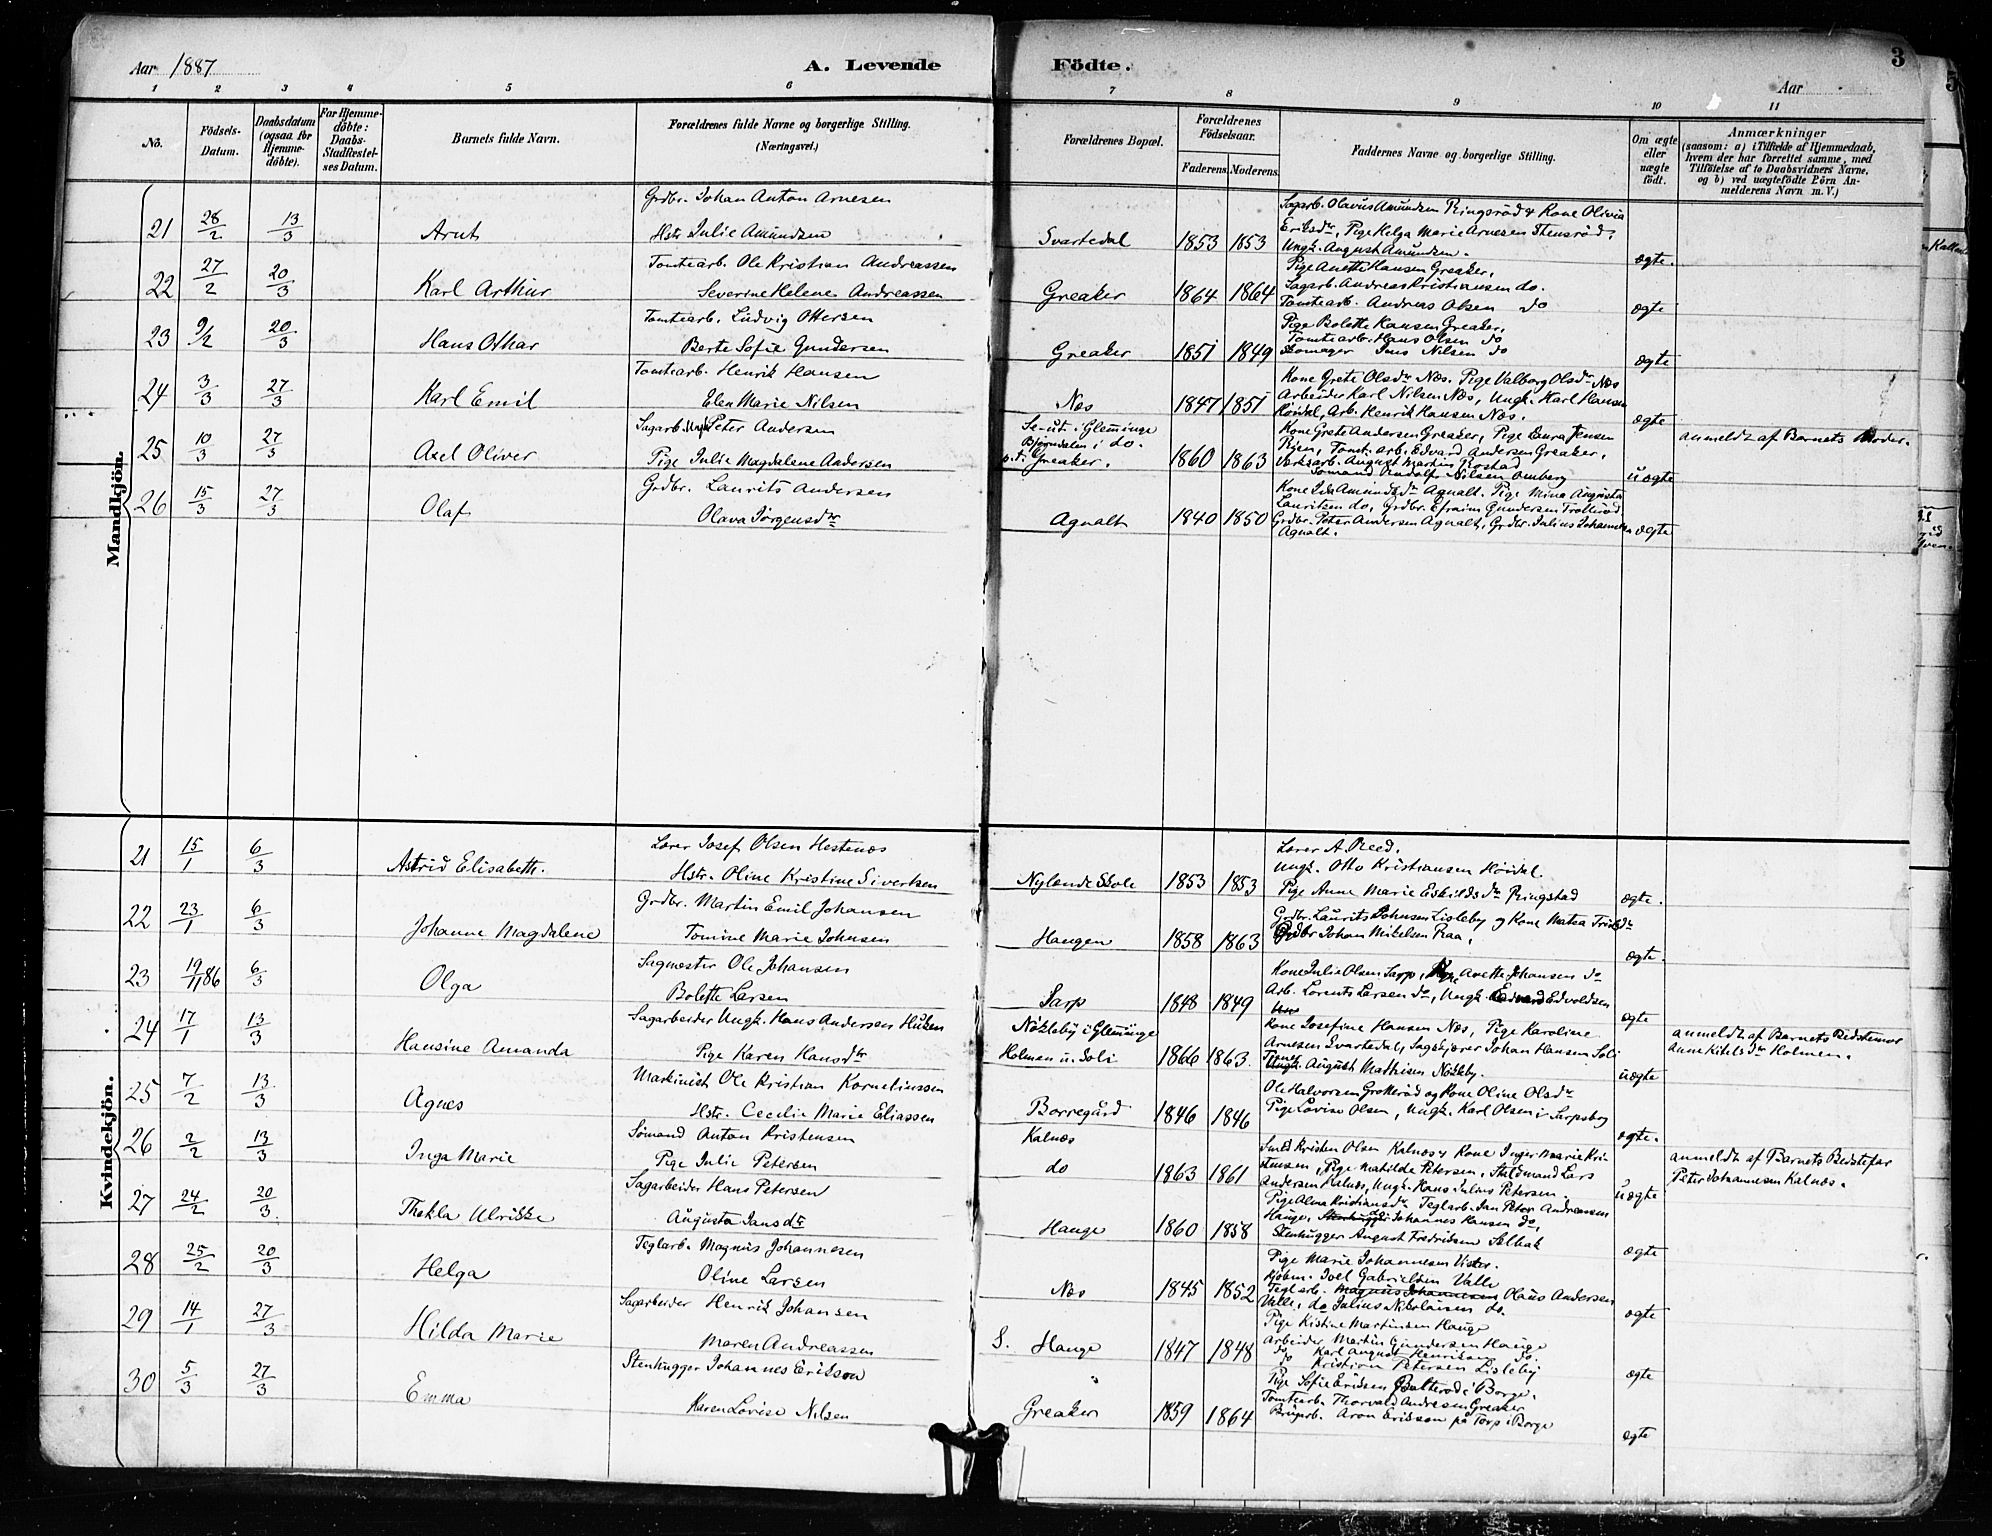 Aar 1887 A. Levende Födte. Aar 3
1 2 3 4 5 6 7 8 9 10 11
No. Födsels-Datum. Daabsdatum (ogsaa for Hjemmedöbte). For Hjemmedöbte: Daabs-Stadfæstelses Datum. Barnets fulde Navn. Forældrenes fulde Navne og borgerlige Stilling. (Næringsvei.) Forældrenes Bopæl. Forældrenes Födselsaar. Faderens Moderens. Faddernes Navne og borgerlige Stilling. Om ægte eller uægte födt. Anmærkninger (saasom: a) i Tilfælde af Hjemmedaab, hvem der har forrettet samme, med Tilföielse af to Daabsvidners Navne, og b) ved uægtefödte Börn Anmelderens Navn m. V.)
Mandkjön.
Grdbr. Johan Anton Arnesen
21 28/2 13/3 Arnt Hstr Julie Amundsen Svartedal 1853 1853 ægte.
Sagarb. Olavus Amundsen Ringsröd & Kone Olivia
Eriksdr, Pige Helga Marie Arnesen Stensröd,
Ungk. August Amundsen.
Tomtearb. Ole Kristian Andreassen
22 27/2 20/3 Karl Arthur Severine Helene Andreassen Greaker 1864 1864 ægte
Pige Anette Hansen Greaker,
Sagarb. Andreas Kristiansen do.
Tomtearb. Andreas Olsen do
Tomtearb. Ludvig Ottersen
23 9/2 20/3 Hans Othar Berte Sofie Gundersen Greaker 1851 1849 ægte
Pige Bolette Hansen Greaker,
Tomtearb. Hans Olsen do
Skomager Jens Nilsen do
Tomtearb. Henrik Hansen
24 3/3 27/3 Karl Emil Elen Marie Nilsen Næs 1847 1851 ægte
Kone Grete Olsdr Næs. Pige Valborg Olsdr Næs
Arbeider Karl Nilsen Næs, Ungk. Karl Hansen
Höidal, Arb. Henrik Hansen Næs.
Sagarb. Ungk Peter Andersen
25 10/3 27/3 Axel Oliver Pige Julie Magdalene Andersen i Glemminge Bjørndalen i do. p.t. Greaker. 1860 1863 uægte anmeldt af Barnets Moder.
Kone Grete Andersen Greaker, Pige Laura Jensen
Rien, Tomt. arb. Edvard Andersen Greaker,
Værksarb. August Martin
Sömand Rudolf Nilsen Omberg
Grdbr. Laurits Andersen
26 15/3 27/3 Olaf Olava Jörgensdr Agnalt 1840 1850 ægte
Kone Ida Amundsdr Agnalt. Pige Mina Augusta
Lauritzen do, Grdbr. Efraim Gundersen
Grdbr. Peter Andersen Agnalt, Grdbr. Julius Johannesen
Agnalt.
Kvindekjön.
Lærer Josef Olsen Hestenæs
21 15/1 6/3 Astrid Elisabeth. Hstr. Oline Kristine Sivertsen Nylænde Skole 1853 1853 ægte.
Lærer A. Reed.
Ungk. Otto Kristiansen Höidal.
Pige Anne Marie Eskildsdr Ringstad
Grdbr. Martin Emil Johansen
22 23/1 6/3 Johanne Magdalene Tomine Marie Johnsen Haugen 1858 1863 ægte.
Grdbr. Laurits Johnsen Lisleby og Kone Matea
Grdbr Johan Mikelsen Raa,
Sagmester Ole Johansen
23 19/1186 6/3 Olga Bolette Larsen Sarp 1848 1849 ægte
Kone Julie Olsen Sarp, Pige Anette Johansen do
Arb. Lorents Larsen do, Ungk. Edvoldsen
Sagarbeider Ungk. Hans Andersen Huken
24 17/1 13/3 Hansine Amanda Pige Karen Hansdtr Nökleby i Glemminge Holmen u. Soli 1866 1863. uægte
Kone Josefine Hansen Næs, Pige Karoline
Arnesen Svartedal, Sagskjærer Johan Hansen Soli
Ungk. August Mathisen Nökleby.
anmeldt af Barnets Bedstemor
Anne Kitelsdr Holmen.
Maskinist Ole Kristian Korneliussen
25 7/2 13/3 Agnes Hstr. Cecilie Marie Eliassen Borregård 1846 1846 ægte.
Ole Halvorsen Grotteröd og Kone Oline Olsdr
Pige Lovise Olsen, Ungk. Karl Olsen i Sarpsborg
Sömand Anton Kristensen
26 2/2 13/3 Inga Marie Pige Julie Petersen Kalnæs do 1863 1861 uægte
Smed Kristen Olsen Kalnæs & Kone Inger Marie Kristensen, Pige Matilde Petersen, Staldmand Lars
Andersen Kalnæs, Ungk. Hans Julius Petersen.
anmeldt af Barnets Bedstefar
Peter Johannesen Kalnæs.
Sagarbeider Hans Petersen
27 24/2 20/3 Thekla Ulrikke Augusta Jansdtr Hauge 1860 1858 ægte
Pige Alma Kristiansdr Teglarb. Jan Peter Andreasen
Hauge, Stenhugger do Johannes Hansen do,
Stenhugger August Fredriksen Selbak
Teglarb. Magnus Johannesen
28 25/2 20/3 Helga Oline Larsen Næs 1845 1852 ægte
Pige Marie Johannesen Vister.
Kjöbm. Joel Gabrielsen Valle
Teglarb. Magnus Johannesen Olaus Andersen
Valle, do Julius Nikolaisen do.
Sagarbeider Henrik Johansen
29 14/1 27/3 Hilda Marie Maren Andreassen S. Hauge 1847 1848 ægte
Pige Kistine Martinsen Hauge
Arbeider Martin Gundersen Hauge
do Karl August Henriksen do.
do Kristian Petersen Lisleby
Stenhugger Johannes Eriksson
30 5/3 27/3 Emma Karen Lovise Nilsen Greaker 1859 1864 ægte
Pige Sofie Eriksen i Borge.
Tomtearb. Thorvald Andresen Greaker
Brugarb. Aron Eriksson på Torp i Borge